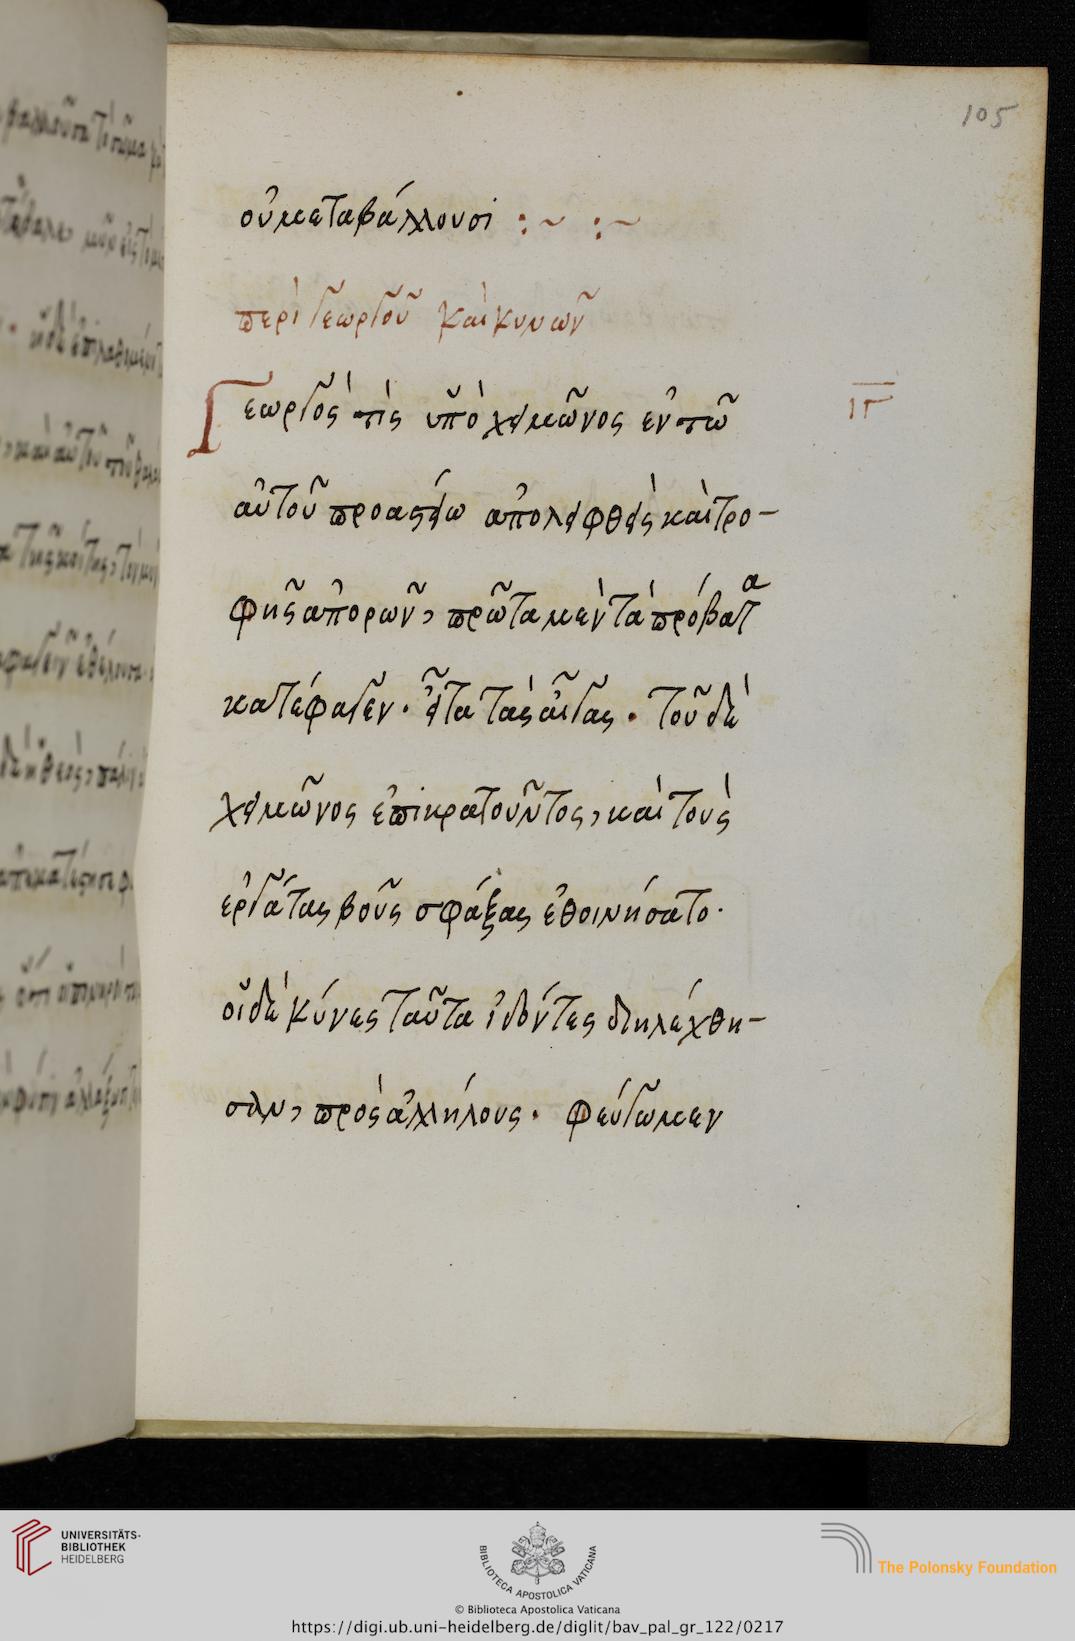 105
οὐ μεταβάλλουσι :~ :~
περὶ γεωργοῦ καὶ κυνῶν
Γεωργός τις ὑπὸ χειμῶνος ἐν τῶ
αὐτοῦ προαστείω ἀποληφθεὶς καὶ τρο-
φῆς ἀπορῶν, πρῶτα μὲν τὰ πρόβατα
κατέφαγεν. εἶτα τὰς αἶγας. τοῦ δὲ
χειμῶνος ἐπικρατοῦντος, καὶ τοὺς
ἐργάτας βοῦς σφάξας ἐθοινήσατο.
οἱ δὲ κύνες ταῦτα ἰδόντες διηλέχθη-
σαν, πρὸς ἀλλήλους. φεύγωμεν
ιγ
UNIVERSITÄTS-
BIBLIOTHEK
HEIDELBERG
BIBLIOTECA APOSTOLICA VATICANA
© Biblioteca Apostolica Vaticana
The Polonsky Foundation
https://digi.ub.uni-heidelberg.de/diglit/bav_pal_gr_122/0217